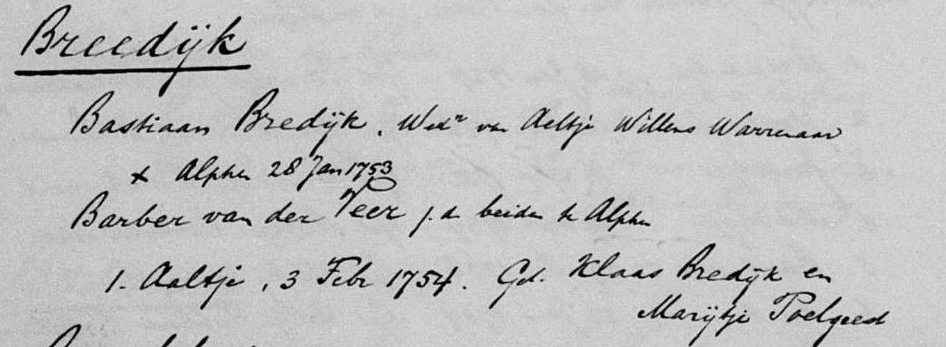 Breedijk
Bastiaan Bredijk, Wedr van Aeltje Willems Warrenaar
x Alphen 28 Jan 1753
Barber van der Veer j.d. beiden te Alphen
1. Aaltje, 3 Febr 1754. Gd. Klaas Bredijk en
Marijtje Poelgeest